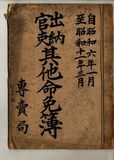 自昭和六年一月
至昭和十一年三月
出納
官吏其他命免簿
專賣局